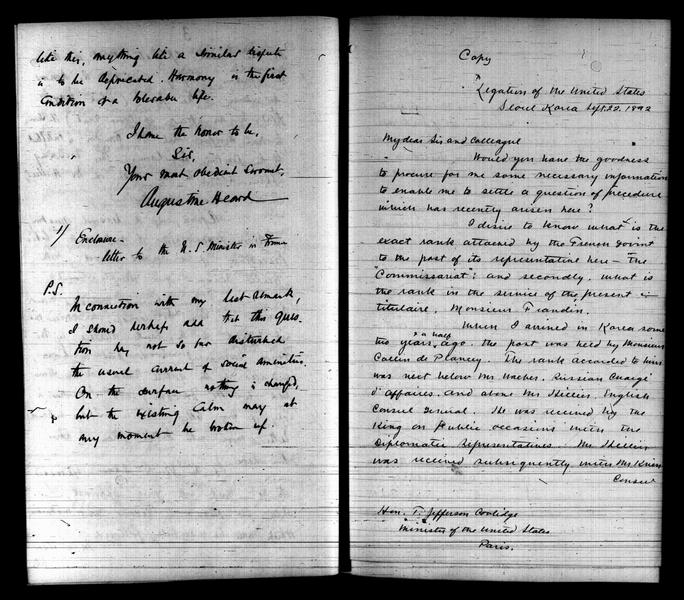 like this, anything like a similar dispute
is to be deprecated. Harmony is the first
condition of a tolerable life.
I have the honor to be,
Sir,
Your most obedient servant,
Augustine Heard
1/ Enclosure-
letter to the U.S. Minister in France
P.S.
In connection with my last remark,
I should perhaps add that this ques-
tion has not so far disturbed
the usual current of social amenities.
On the surface nothing is changed,
but the existing calm may at
any moment be broken up.
Copy
Legation of the United States
Seoul Korea Sept. 22. 1892
My dear Sir and Colleague
Would you have the goodness
to procure for me some necessary information
to enable me to settle a question of precedence
which has recently arisen here?
I desire to know what is the
exact rank attached by the French Govmt
to the post of its representative here – the
"Commissariat"; and secondly, what is
the rank in the service of the present in-
titulaire, Monsieur Frandin.
When I arrived in Korea some
two & a half years ago, the post was held by Monsieur
Collin de Plancy. The rank accorded to him
was next below Mr Waeber, Russian Chargé
d'affaires, and above Mr Hillier, English
Consul General. He was received by the
King on public occasions with the
Diplomatic Representatives. Mr Hillier
was received subsequently with Mr Krien
Consul
Hon. T. Jefferson Coolidge
Minister of the United States
Paris.